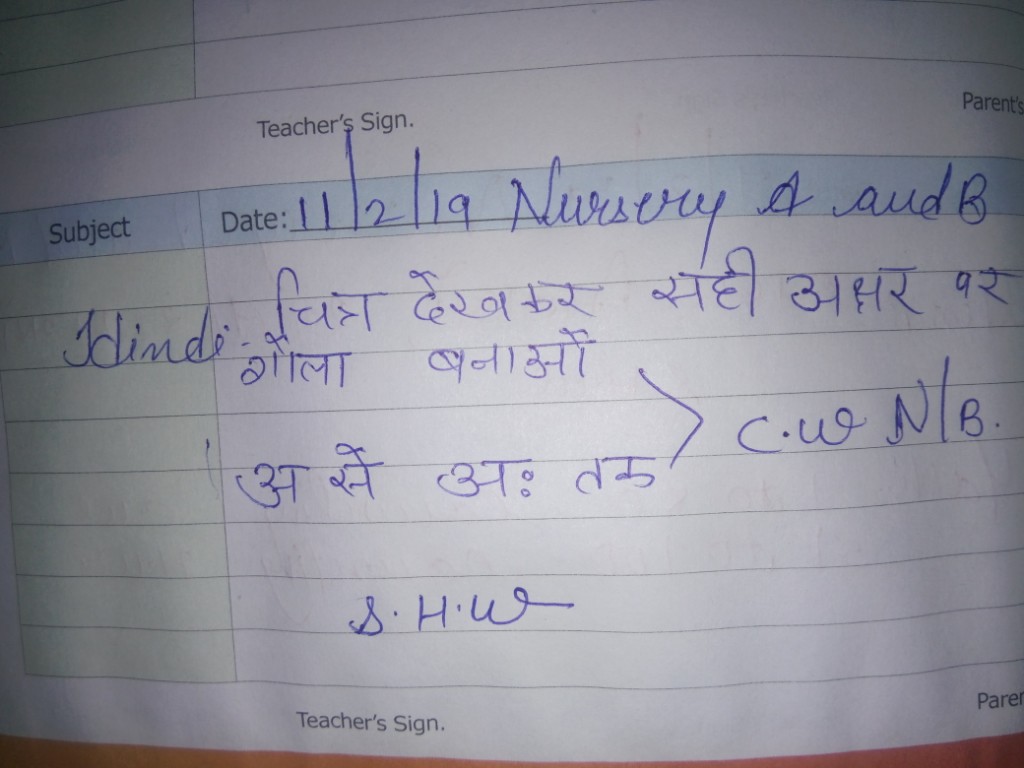 Teacher's Sign. Parent's
Subject Date: 11/2/19 Nursery A and B
Hindi- चित्र देखकर सही अक्षर पर
गोला बनाओं
अ से अः तक > C.W N/B.
S.H.W
Teacher's Sign. Paren